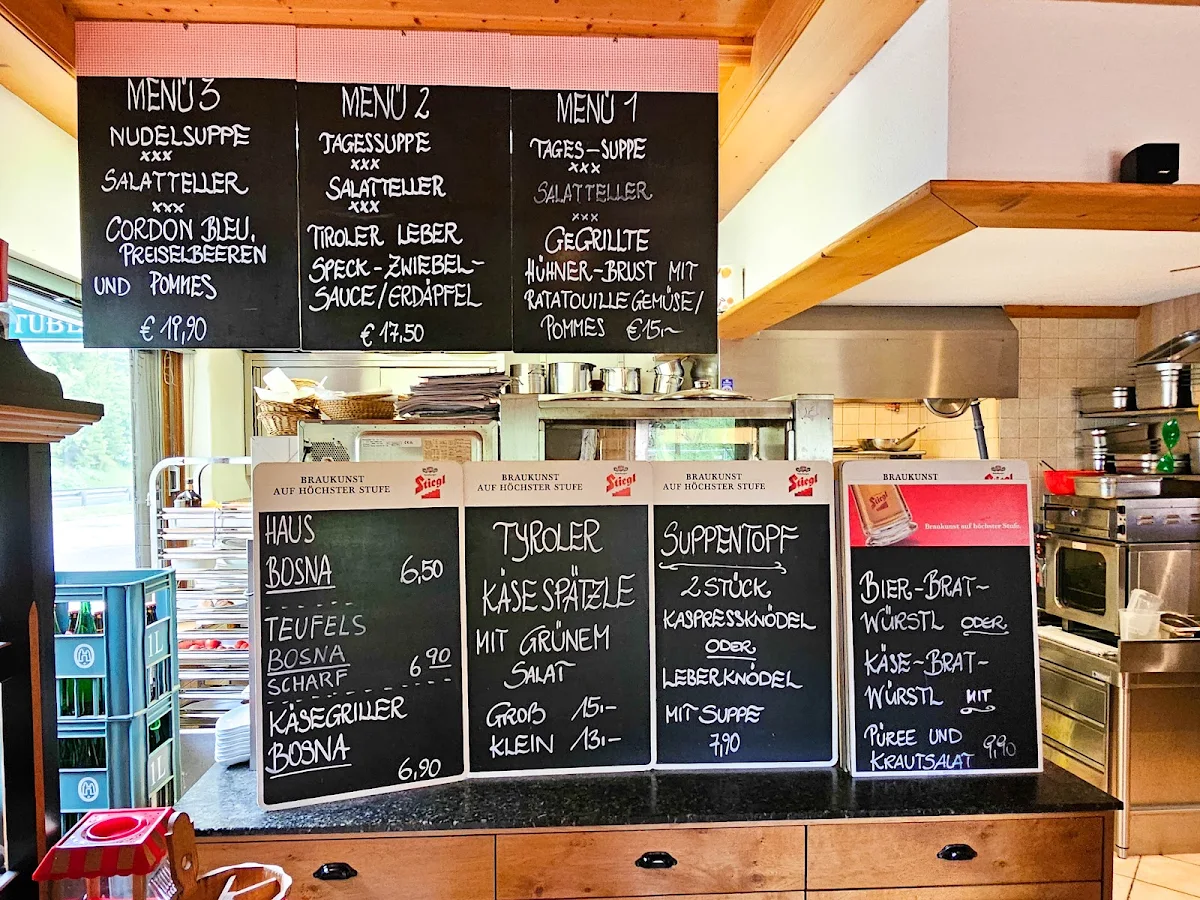 MENÜ 3
NUDELSUPPE
xxx
SALATTELLER
xxx
CORDON BLEU,
PREISELBEEREN
UND POMMES
€ 19,90
MENÜ 2
TAGESSUPPE
xxx
SALATTELLER
xxx
TIROLER LEBER
SPECK-ZWIEBEL-
SAUCE/ERDÄPFEL
€ 17,50
MENÜ 1
TAGES-SUPPE
xxx
SALATTELLER
xxx
GEGRILLTE
HÜHNER-BRUST MIT
RATATOUILLE GEMÜSE/
POMMES €15,-
TUBE
BRAUKUNST
AUF HÖCHSTER STUFE
Stiegl
HAUS
BOSNA 6,50
TEUFELS
BOSNA
SCHARF 6,90
KÄSEGRILLER
BOSNA
6,90
BRAUKUNST
AUF HÖCHSTER STUFE
Stiegl
TYROLER
KÄSESPÄTZLE
MIT GRÜNEM
SALAT
GROß 15.-
KLEIN 13.-
BRAUKUNST
AUF HÖCHSTER STUFE
Stiegl
SUPPENTOPF
2 STÜCK
KASPRESSKNÖDEL
ODER
LEBERKNÖDEL
MIT SUPPE
7,90
BRAUKUNST
Stiegl
Stiegl
Braukunst auf höchster Stufe.
BIER-BRAT-
WÜRSTL ODER
KÄSE-BRAT-
WÜRSTL MIT
PÜREE UND
KRAUTSALAT 9,90
1L
1L